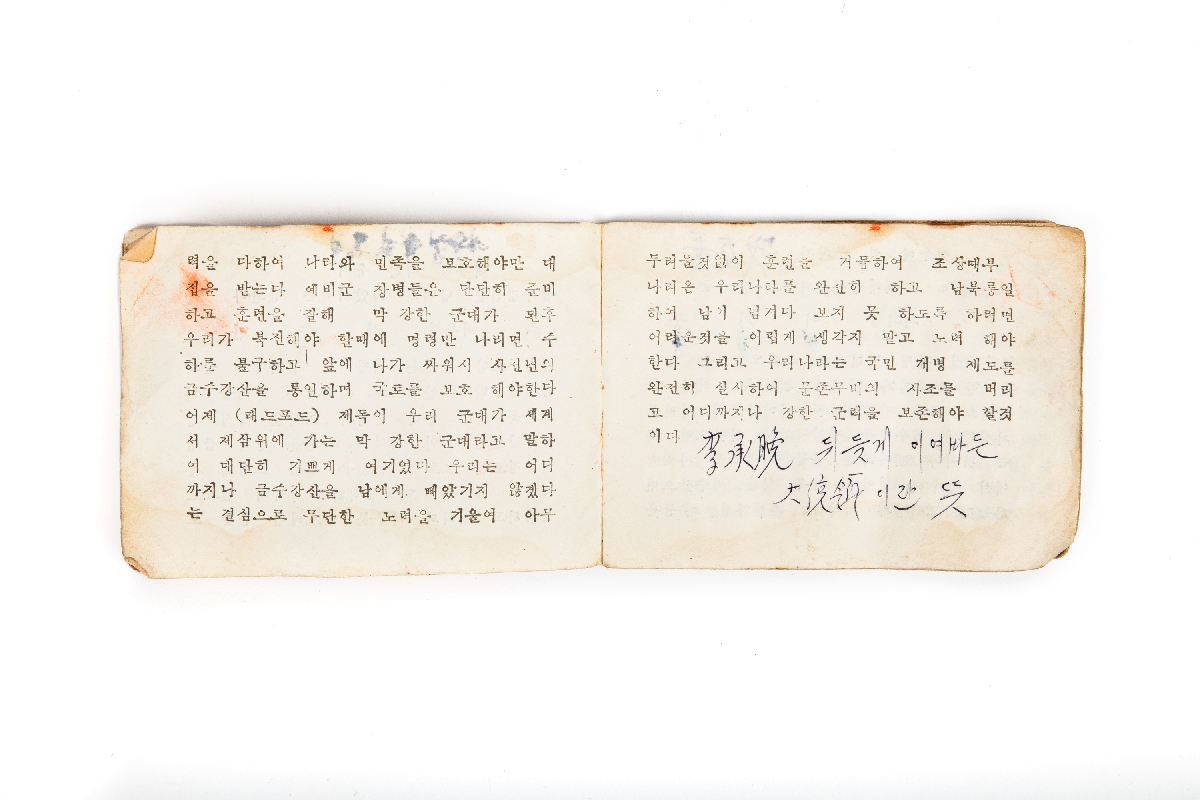 력을 다하여 나라와 민족을 보호해야만 대
접을 받는다 예비군 장병들은 단단히 준비
하고 훈련을 잘해 막 강한 군대가 된후
우리가 북진해야 할때에 명령만 나리면 수
하를 불구하고 앞에 나가 싸워서 사천년의
금수강산을 통일하며 국토를 보호 해야한다
어제 (래드포드) 제독이 우리 군대가 세계
서 제삼위에 가는 막 강한 군대라고 말하
여 대단히 기쁘게 여기었다 우리는 어디
까지나 금수강산을 남에게 빼았기지 않겠다
는 결심으로 무단한 노력을 기울여 아무
두려울것없이 훈련을 거듭하여 조상때부
나려온 우리나라를 완전히 하고 남북통일
하여 남이 넘겨다 보지 못 하도록 하려면
어려운것을 어렵게 생각지 말고 노력 해야
한다 그리고 우리나라는 국민 개병 제도를
완전히 실시하여 문존무비의 사조를 머리
고 어디까지나 강한 군력을 보존해야 할것
이다
李承晩 뒤늦게 이여바든
大 이란 뜻